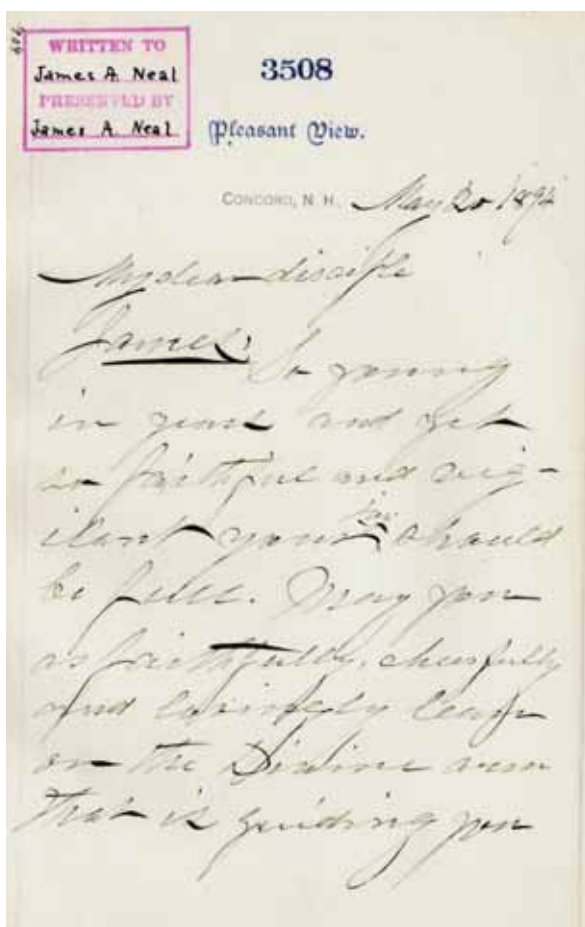 WRITTEN TO
James A. Neal
PRESENTED BY
James A. Neal
3508
Pleasant View.
CONCORD, N. H. May 20 1894
My dear disciple
James,
So young
in years and yet
so faithful and vig-
ilant your joy should
be full. May you
as faithfully, cheerfully
and lovingly lean
on the Divine arm
that is guiding you